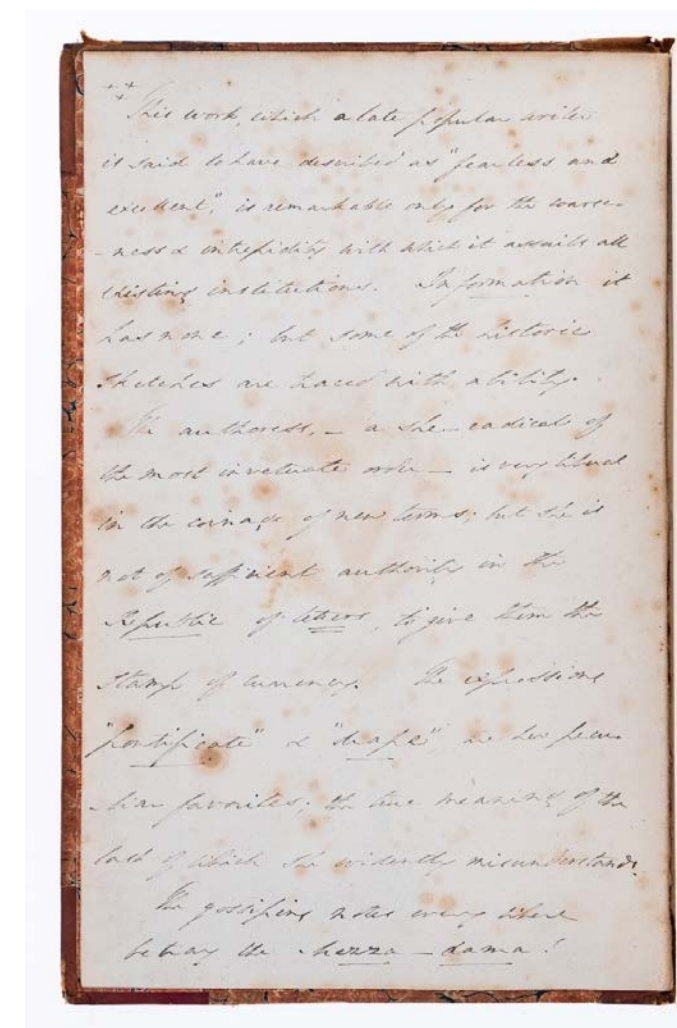 This work, which a late popular writer
is said to have described as "fearless and
excellent", is remarkable only for the coarse-
-ness & intrepidity with which it assails all
existing institutions. Information it
has none; but some of the historic
sketches are traced with ability.
The authoress, – a she-radical of
the most inveterate order – is very liberal
in the coinage of new terms; but she is
not of sufficient authority in the
Republic of letters, to give them the
stamp of currency. The expressions
"pontificate" & "drape", are her pecu-
-liar favorites; the true meaning of the
last of which she evidently misunderstands.
The gossiping notes every where
betray the mezza – dama!